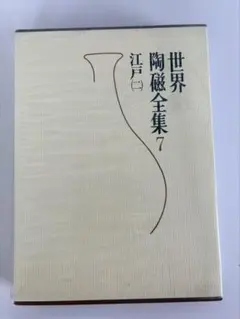 世界
陶磁全集 7
江戸(二)